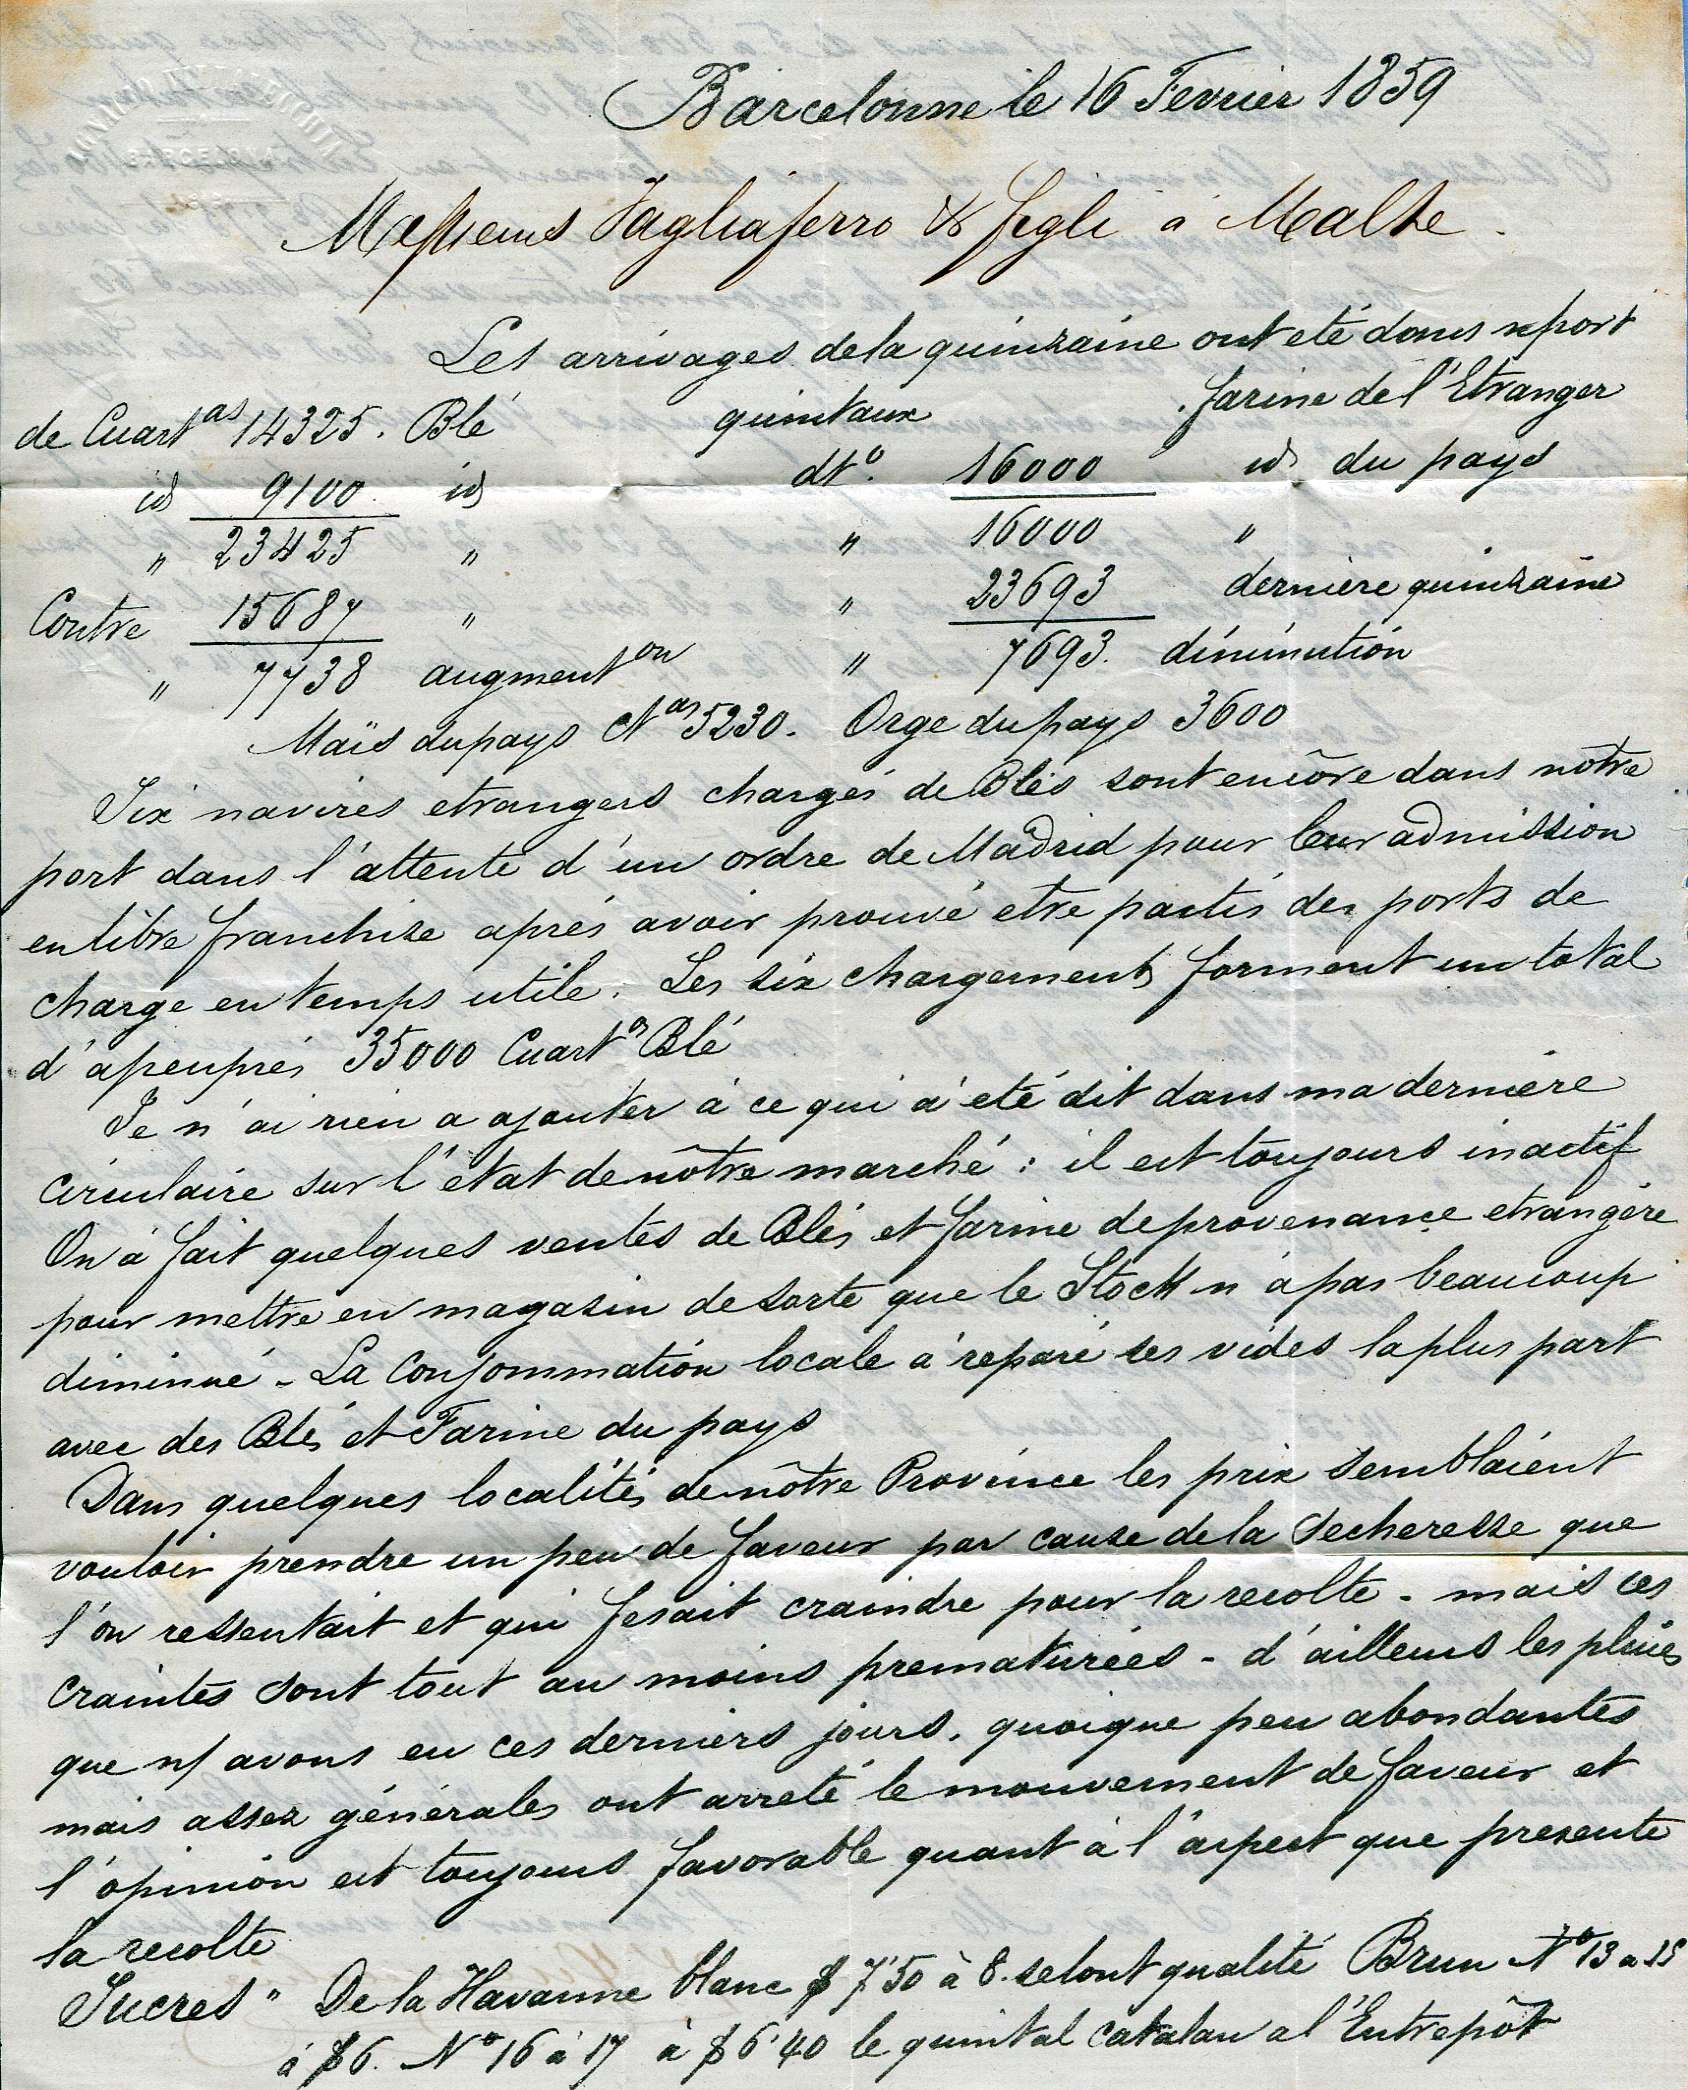 Barcelonne le 16 Fevrier 1859
Messieurs Tagliaferro & figli à Malte
Les arrivages de la quinzaine ont eté dans n/port
de Cuartas 14325. Blé quintaux farine de l'Etranger
id 9100 id dto. 16000 id du pays
" 23425 " " 16000 "
Contre 15687 " " 23693 derniere quinzaine
" 7738 augmenton " 7693. diminution
Maïs du pays 5230. Orge du pays 3600
Six navires etrangers chargés de Blés sont encôre dans nôtre
port dans l'attente d'un ordre de Madrid pour leur admission
en libre franchise aprés avoir prouvé etre partis des ports de
charge en temps utile. Les six chargements forment un total
d'apeuprés 35000 Cuartas Blé
Je n'ai rien a ajouter à ce qui à eté dit dans ma derniere
circulaire sur l'etat de nôtre marché : il est toujours inactif
On à fait quelques ventes de Blés et farine de provenance etrangère
pour mettre en magasin de sorte que le Stock n'a pas beaucoup
diminué - La Consommation locale à reparé ses vides la plus part
avec des Blés et Farine du pays
Dans quelques localités de nôtre Province les prix semblaient
vouloir prendre un peu de faveur par cause de la secheresse que
l'on ressentait et qui fesait craindre pour la recolte - mais ces
craintes sont tout au moins prematurées - d'ailleurs les pluies
que n/ avons eu ces derniers jours, quoique peu abondantes
mais assez générales ont arreté le mouvement de faveur et
l'opinion est toujours favorable quant à l'aspect que presente
la recolte
Sucres " De la Havanne blanc $ 7'50 à 8. selont qualité Brun No 13 a 15
á $6. No 16 à 17 à $6'40 le quintal catalan a l'Entrepôt